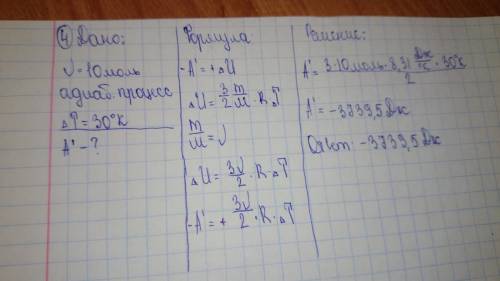 ④ Дано:
ν = 10 моль
адиаб. процесс
ΔT = 30°K
A' - ?
Формула
-A' = +ΔU
ΔU = 3/2 m/M · R · ΔT
m/M = ν
ΔU = 3ν/2 · R · ΔT
-A' = + 3ν/2 · R · ΔT
Решение:
A' = 3·10моль·8,31 Дж/°K · 30°K / 2
A' = -3739,5 Дж
Ответ: -3739,5 Дж